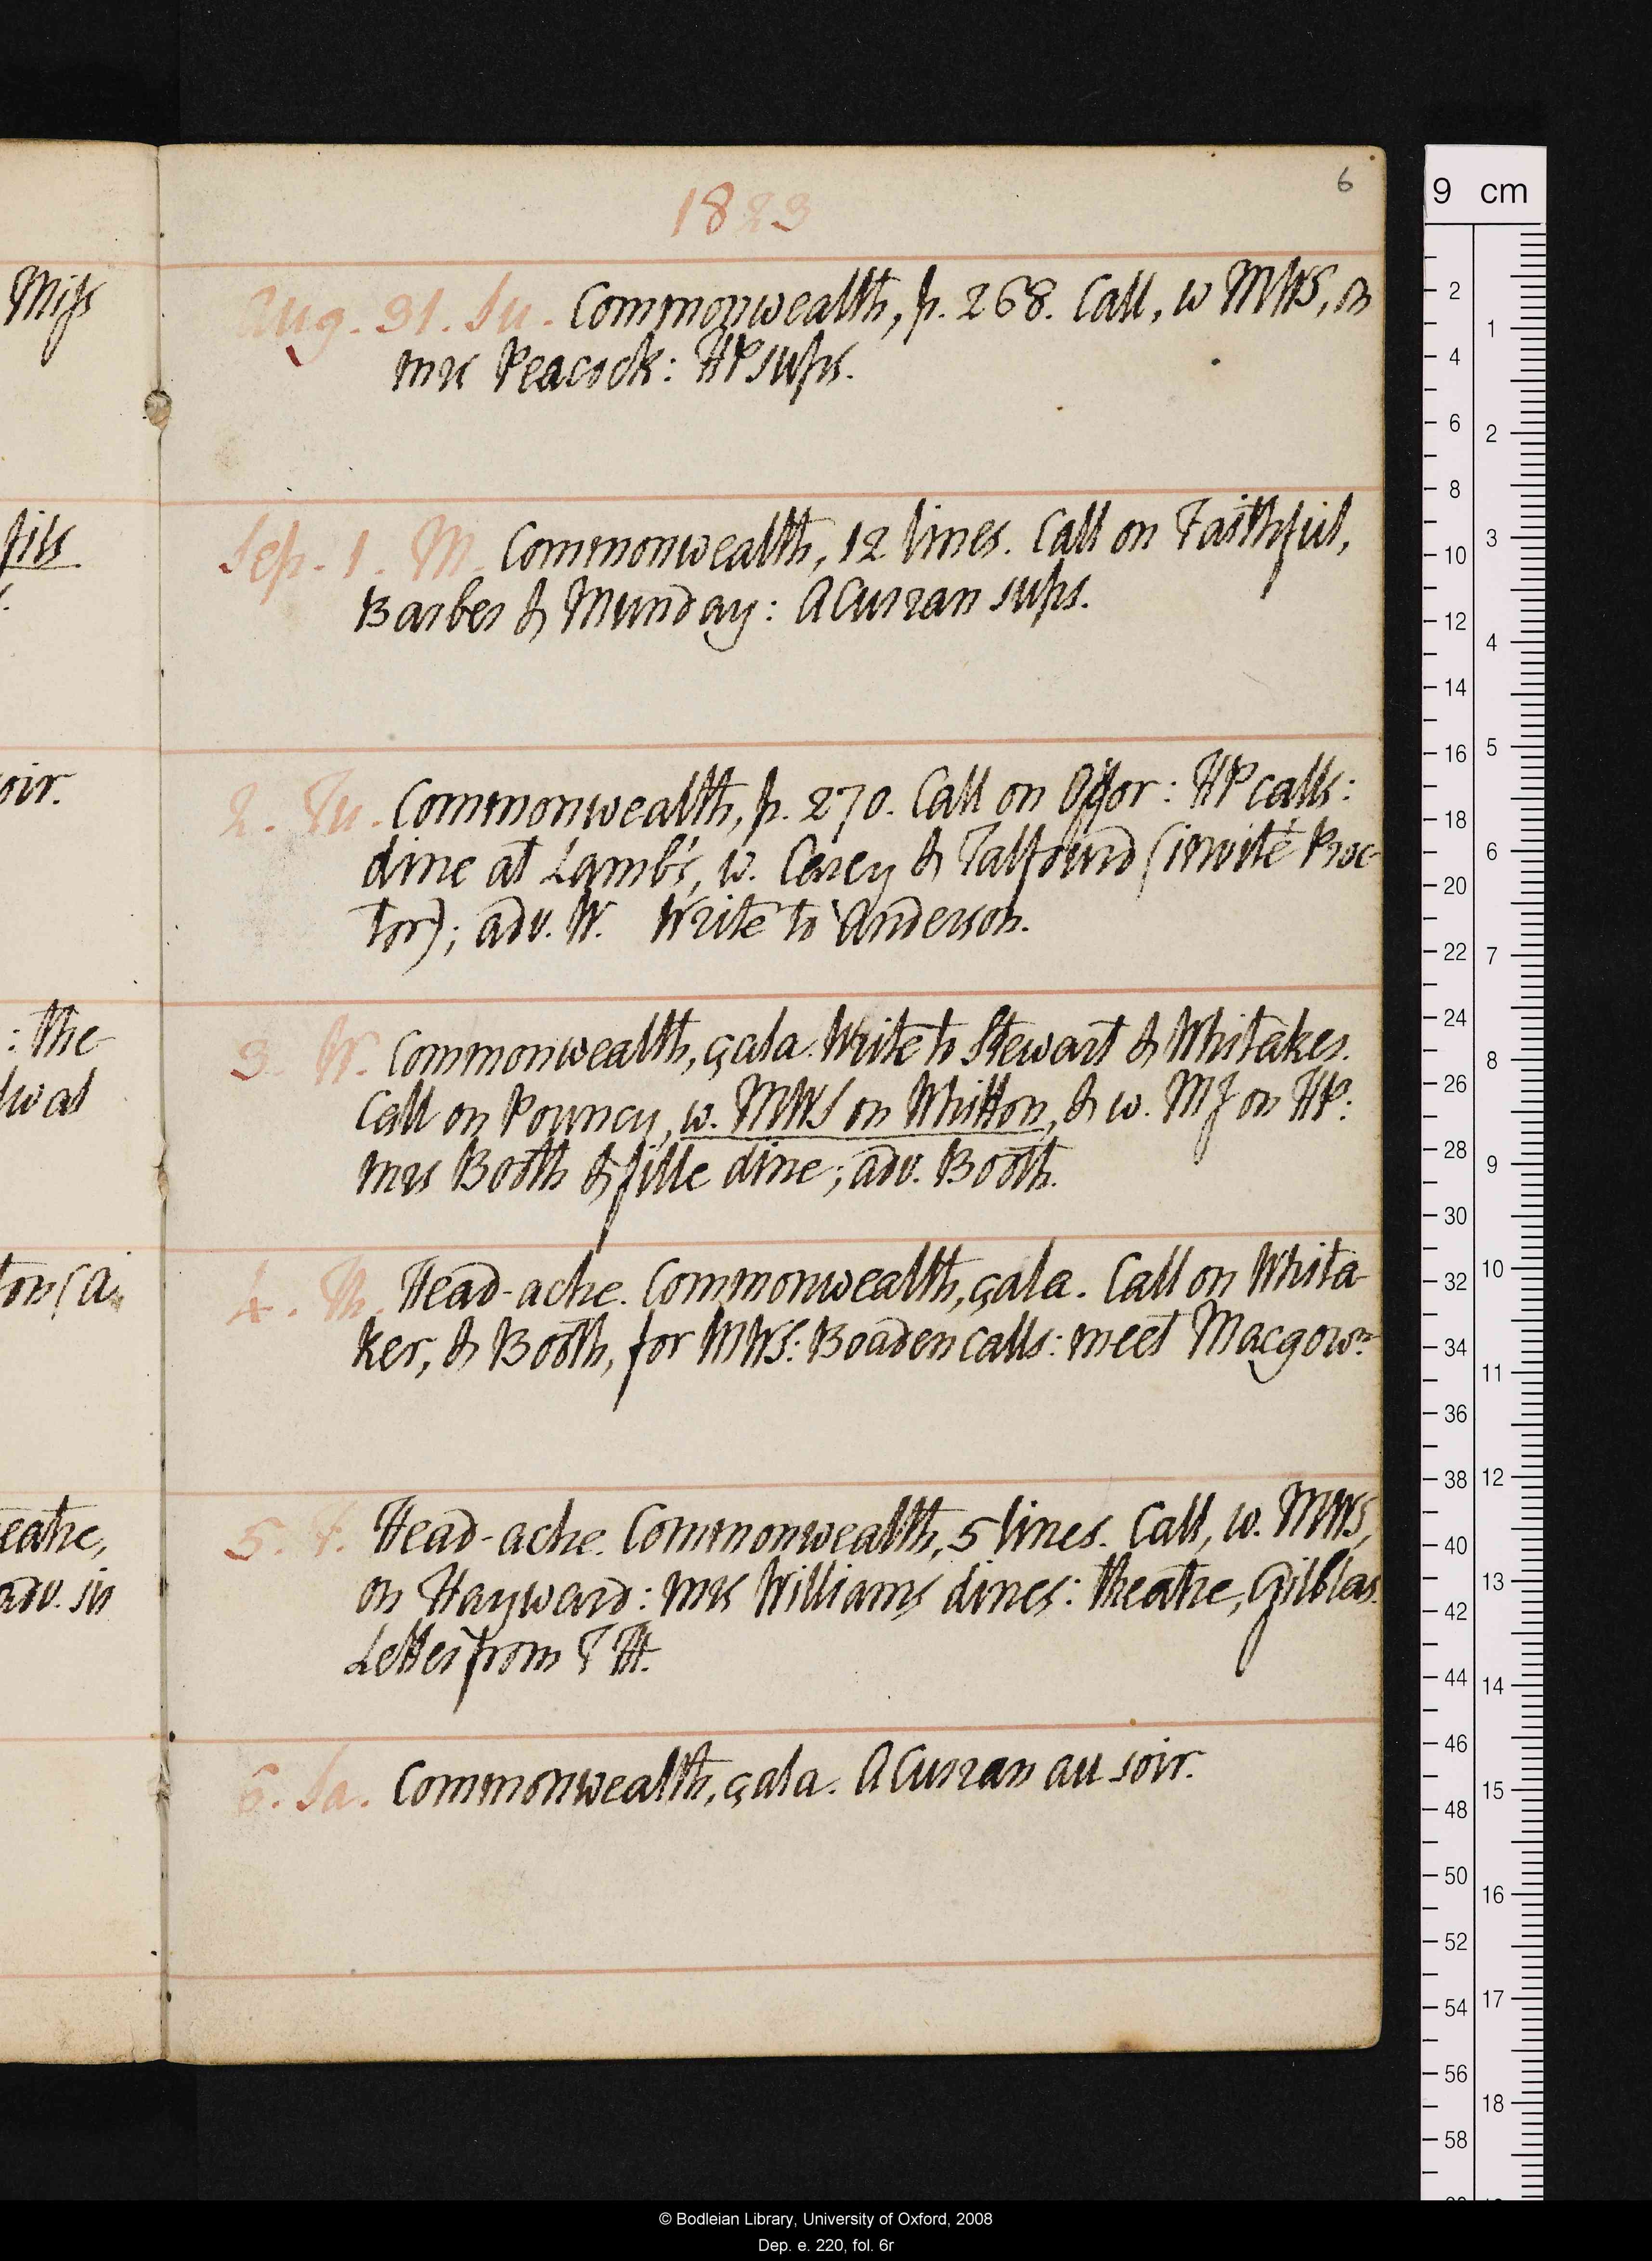 6
1823
Miss
Aug. 31. Su. Commonwealth, p. 268. Call, w MWS, on
mrs Peacock: HP sups.
fils
Sep. 1. M. Commonwealth, 12 lines. Call on Faithful,
Barber & Munday: A Curran sups.
oir.
2. Tu. Commonwealth, p. 270. Call on Offor: HP calls:
dine at Lamb's, w. Carey & Talfourd (invité Proc-
tor); adv. W. Write to Anderson.
: the-
3. W. Commonwealth, çala. Write to Stewart & Whitaker.
Call on Pouncy, w. MWS on Whitton, & w. MJ on HP:
mrs Booth & fille dine; adv. Booth.
ton (a
4. Th. Head-ache. Commonwealth, çala. Call on Whita-
ker, & Booth, for MWS: Boaden calls: meet Macgown
eatre,
adv. in
5. F. Head-ache. Commonwealth, 5 lines. Call, w. MWS,
on Hayward: mrs Williams dines: theatre, Gil blas.
Letter from T H.
6. Sa. Commonwealth, çala. A Curran au soir.
9 cm
2
4
6
8
10
12
14
16
18
20
22
24
26
28
30
32
34
36
38
40
42
44
46
48
50
52
54
56
58
1
2
3
4
5
6
7
8
9
10
11
12
13
14
15
16
17
18
© Bodleian Library, University of Oxford, 2008
Dep. e. 220, fol. 6r